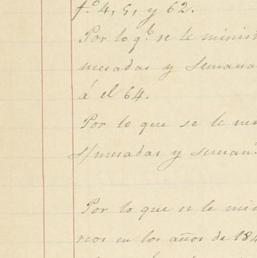 fs. 4, 5, y 62.
Por lo qe. se le minist
mesadas y semana
á el 64.
Por lo que se le me
s/mesadas y seman
Por lo que se le mi
nos en los años de 184